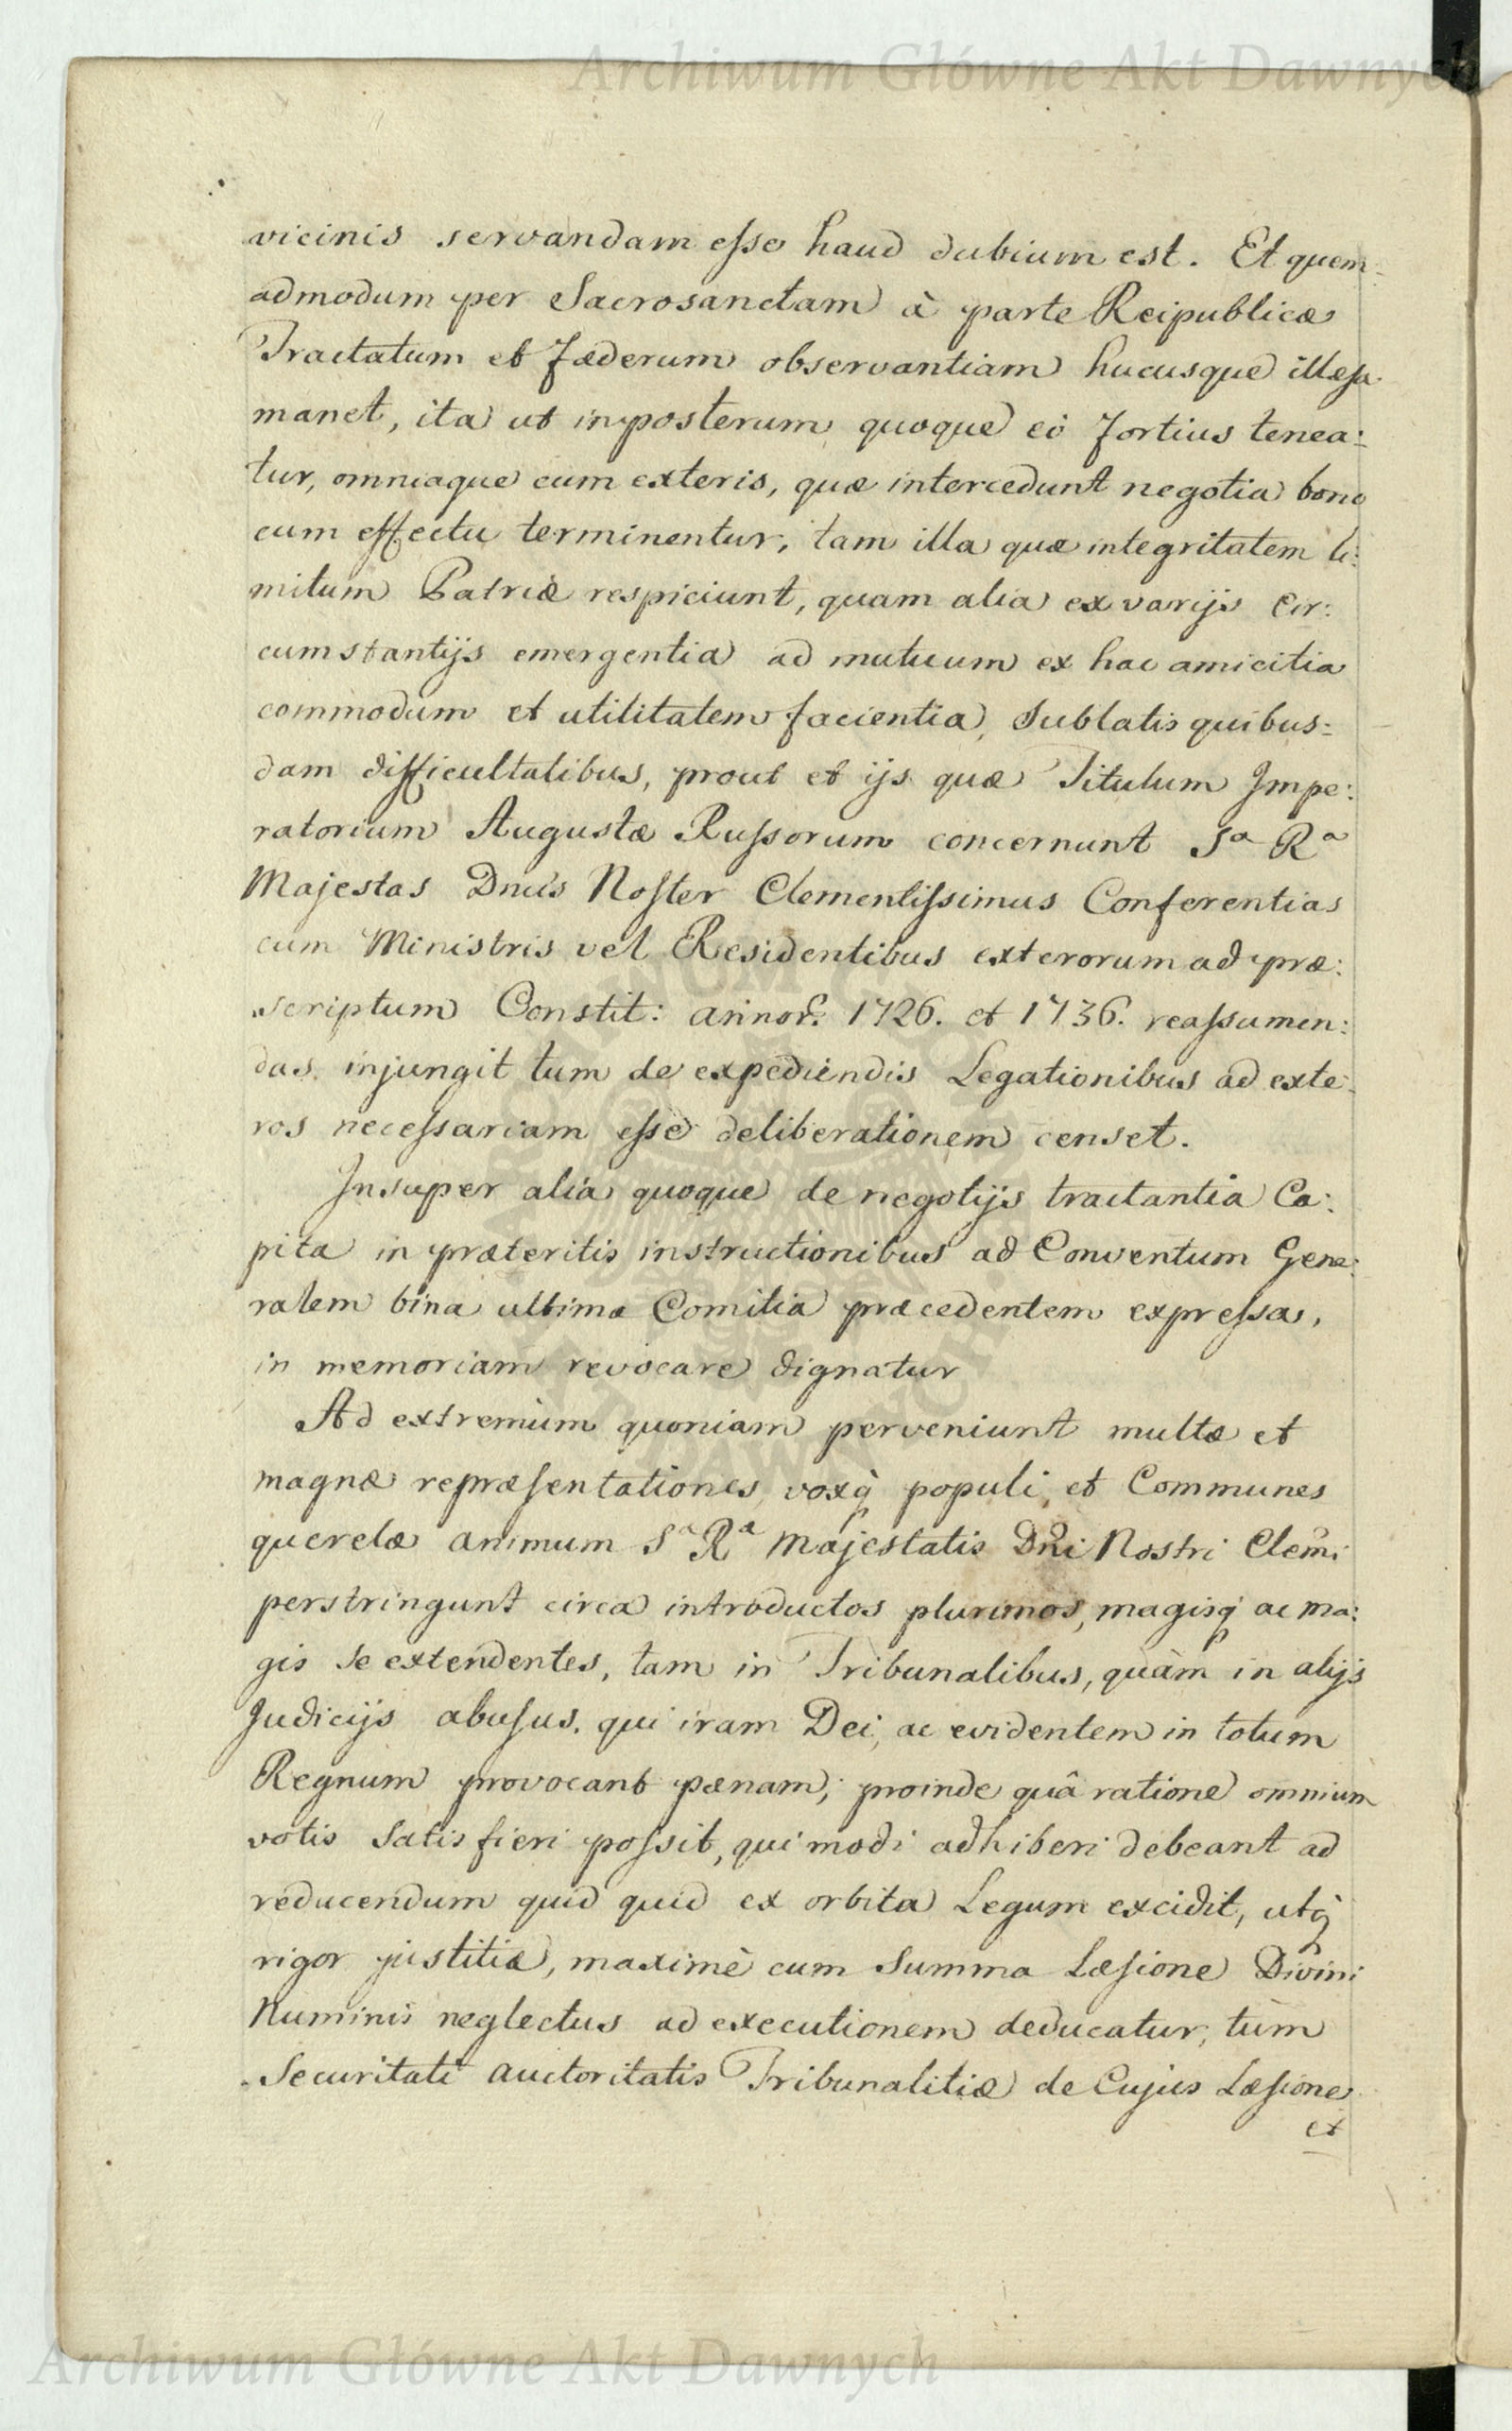 Archiwum Główne Akt Dawnych
vicinis servandam esse haud dubium est. Et quem:
admodum per Sacrosanctam à parte Reipublicæ
Tractatum et Fæderum observantiam hucusque illæsa
manet, ita ut inposterum quoque eò fortius tenea:
tur, omniaque cum exteris, quæ intercedunt negotia bono
cum effectu terminentur, tam illa quæ integritatem li:
mitum Patriæ respiciunt, quam alia ex varijs Cir:
cumstantijs emergentia ad mutuum ex hac amicitia
commodum et utilitatem facientia, Sublatis quibus:
dam difficultatibus, prout et ijs quæ Titulum Impe:
ratorium Augustæ Russorum concernunt Sa Ra
Majestas Dnus Noster Clementissimus Conferentias
cum Ministris vel Residentibus exterorum ad præ:
scriptum Constit: annor: 1726. et 1736. reassumen:
das injungit tum de expediendis Legationibus ad exte:
ros necessariam esse deliberationem censet.
Insuper alia quoque de negotijs tractantia Ca:
pita in præteritis instructionibus ad Conventum Gene:
ralem bina ultima Comitia præcedentem expressa,
in memoriam revocare dignatur
Ad extremum quoniam perveniunt multæ et
magnæ repræsentationes, voxq populi, et Communes
querelæ animum Sa Ra Majestatis Dni Nostri Clemi
perstringunt circa introductos plurimos, magisq ac ma:
gis se extendentes, tam in Tribunalibus, quàm in alijs
Judicijs abusus, qui iram Dei, ac evidentem in totum
Regnum provocant pænam; proinde quâ ratione omnium
votis Satisfieri possit, qui modi adhiberi debeant ad
reducendum quid quid ex orbita Legum excidit, utq
rigor justitiæ, maximè cum Summa Læsione Divini
Numinis neglectus ad executionem deducatur, tùm
Securitati auctoritatis Tribunalitiæ de Cujus Læsione
ex
Archiwum Główne Akt Dawnych